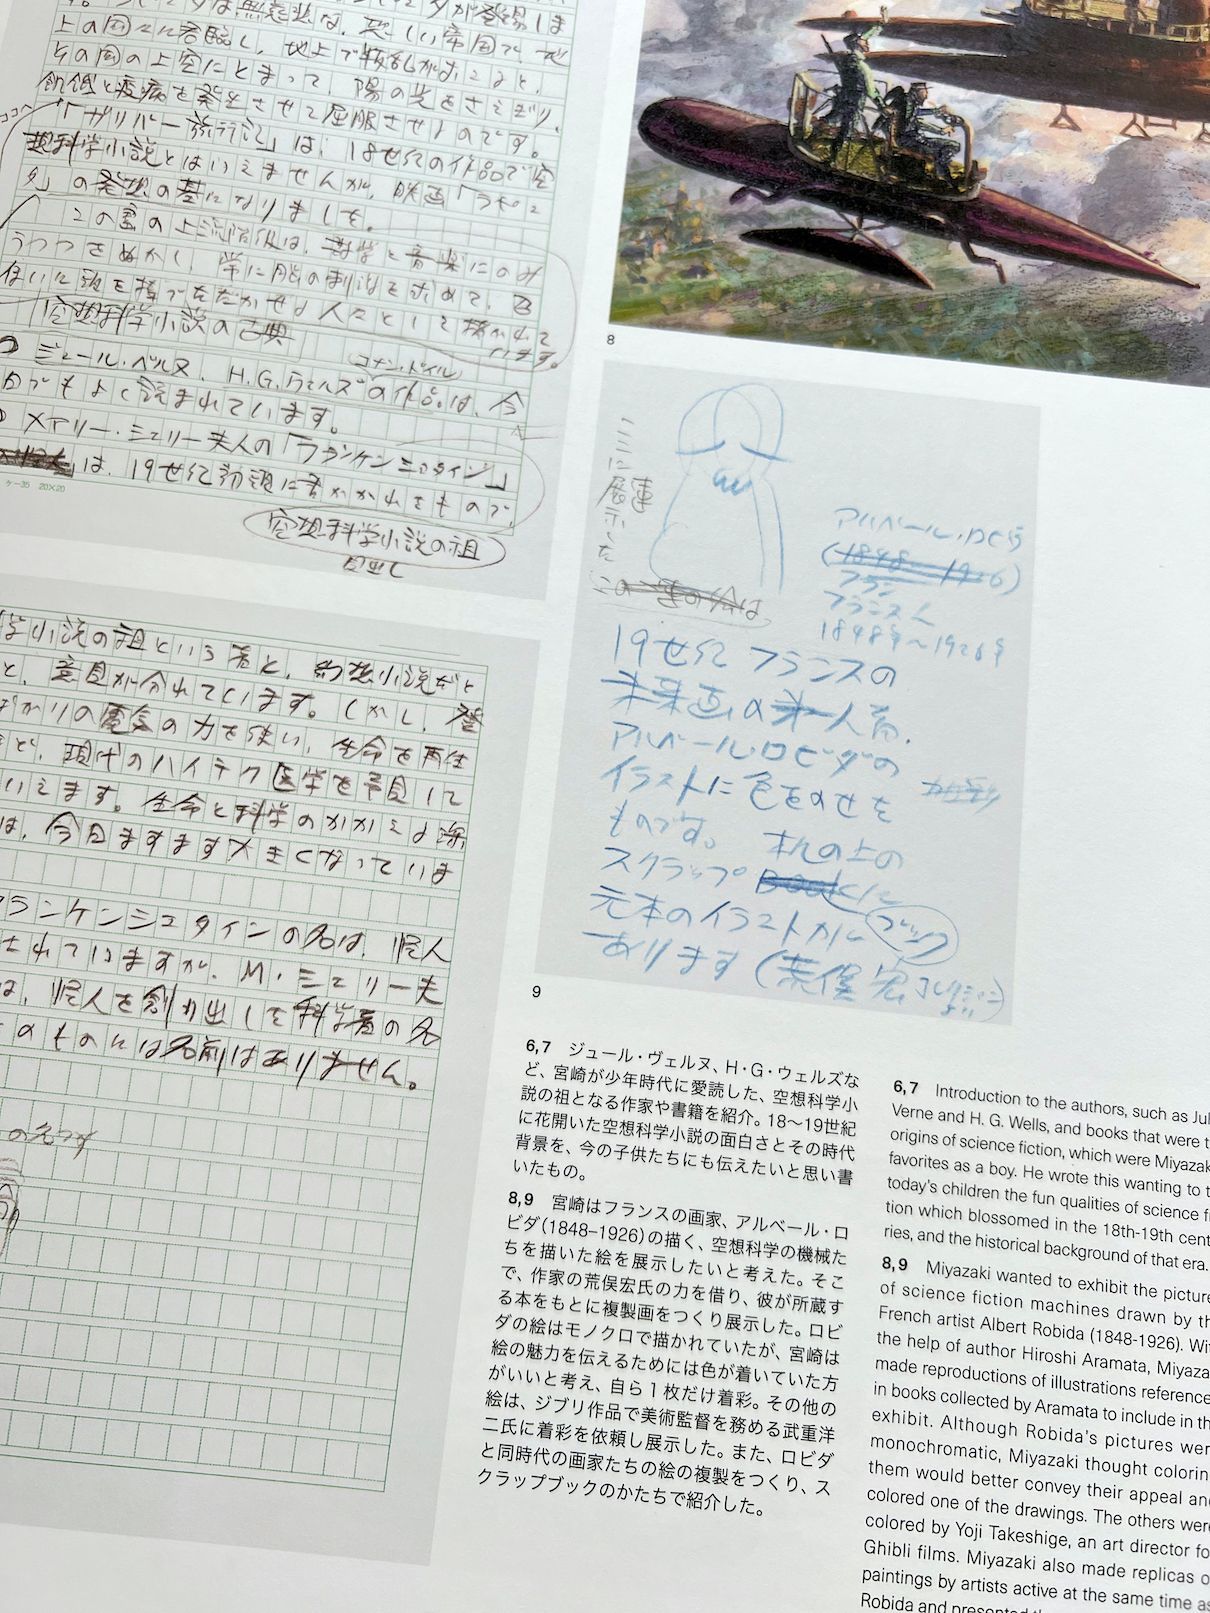 上の国々に君臨し、地上で反乱がおこると、
その国の上空にとまって、陽の光をさえぎり、
飢饉と疫病を発生させて屈服させるのです。
ココへ
「ガリバー旅行記」は、18世紀の作品で空
想科学小説とはいえませんが、映画「ラピュ
タ」の発想の基になりました。
この雲の上流階級は、哲学と音楽にのみ
うつつをぬかし、
空想科学小説の古典
コナン・ドイル
ジュール・ベルヌ、H.G.ウェルズの作品は、今
でもよく読まれています。
メアリー・シェリー夫人の「フランケンシュタイン」
は、19世紀初頭に書かれたもので、
ケー35 20×20
空想科学小説の祖
見出し
学小説の祖という者と、幻想小説だと
と、意見が分れています。しかし、発
ばかりの電気の力を使い、生命を再生
ど、現代のハイテク医学を予見して
いえます。生命と科学のかかえる深
は、今日ますます大きくなっていま
フランケンシュタインの名は、怪人
されていますが、M・シェリー夫
は、怪人を創り出した科学者の名
そのものには名前はありません。
8
ここに展示した
アルベール・ロビダ
(1848〜1926)
フラン
フランス人
1848年〜1926年
19世紀フランスの
未来画の第一人者、
アルベール・ロビダの
イラストに色をのせた
ものです。 本の上の
スクラップBookに
ブック
元本のイラストが
あります(荒俣宏コレクションより)
9
6,7 ジュール・ヴェルヌ、H・G・ウェルズな
ど、宮崎が少年時代に愛読した、空想科学小
説の祖となる作家や書籍を紹介。18〜19世紀
に花開いた空想科学小説の面白さとその時代
背景を、今の子供たちにも伝えたいと思い書
いたもの。
8,9 宮崎はフランスの画家、アルベール・ロ
ビダ(1848–1926)の描く、空想科学の機械た
ちを描いた絵を展示したいと考えた。そこ
で、作家の荒俣宏氏の力を借り、彼が所蔵す
る本をもとに複製画をつくり展示した。ロビ
ダの絵はモノクロで描かれていたが、宮崎は
絵の魅力を伝えるためには色が着いていた方
がいいと考え、自ら1枚だけ着彩。その他の
絵は、ジブリ作品で美術監督を務める武重洋
二氏に着彩を依頼し展示した。また、ロビダ
と同時代の画家たちの絵の複製をつくり、ス
クラップブックのかたちで紹介した。
6,7 Introduction to the authors, such as Jul
Verne and H. G. Wells, and books that were t
origins of science fiction, which were Miyazak
favorites as a boy. He wrote this wanting to t
today's children the fun qualities of science fi
tion which blossomed in the 18th-19th cent
ries, and the historical background of that era.
8,9 Miyazaki wanted to exhibit the picture
of science fiction machines drawn by th
French artist Albert Robida (1848-1926). Wi
the help of author Hiroshi Aramata, Miyaza
made reproductions of illustrations reference
in books collected by Aramata to include in th
exhibit. Although Robida's pictures wer
monochromatic, Miyazaki thought colorin
them would better convey their appeal and
colored one of the drawings. The others were
colored by Yoji Takeshige, an art director fo
Ghibli films. Miyazaki also made replicas o
paintings by artists active at the same time as
Robida and presented